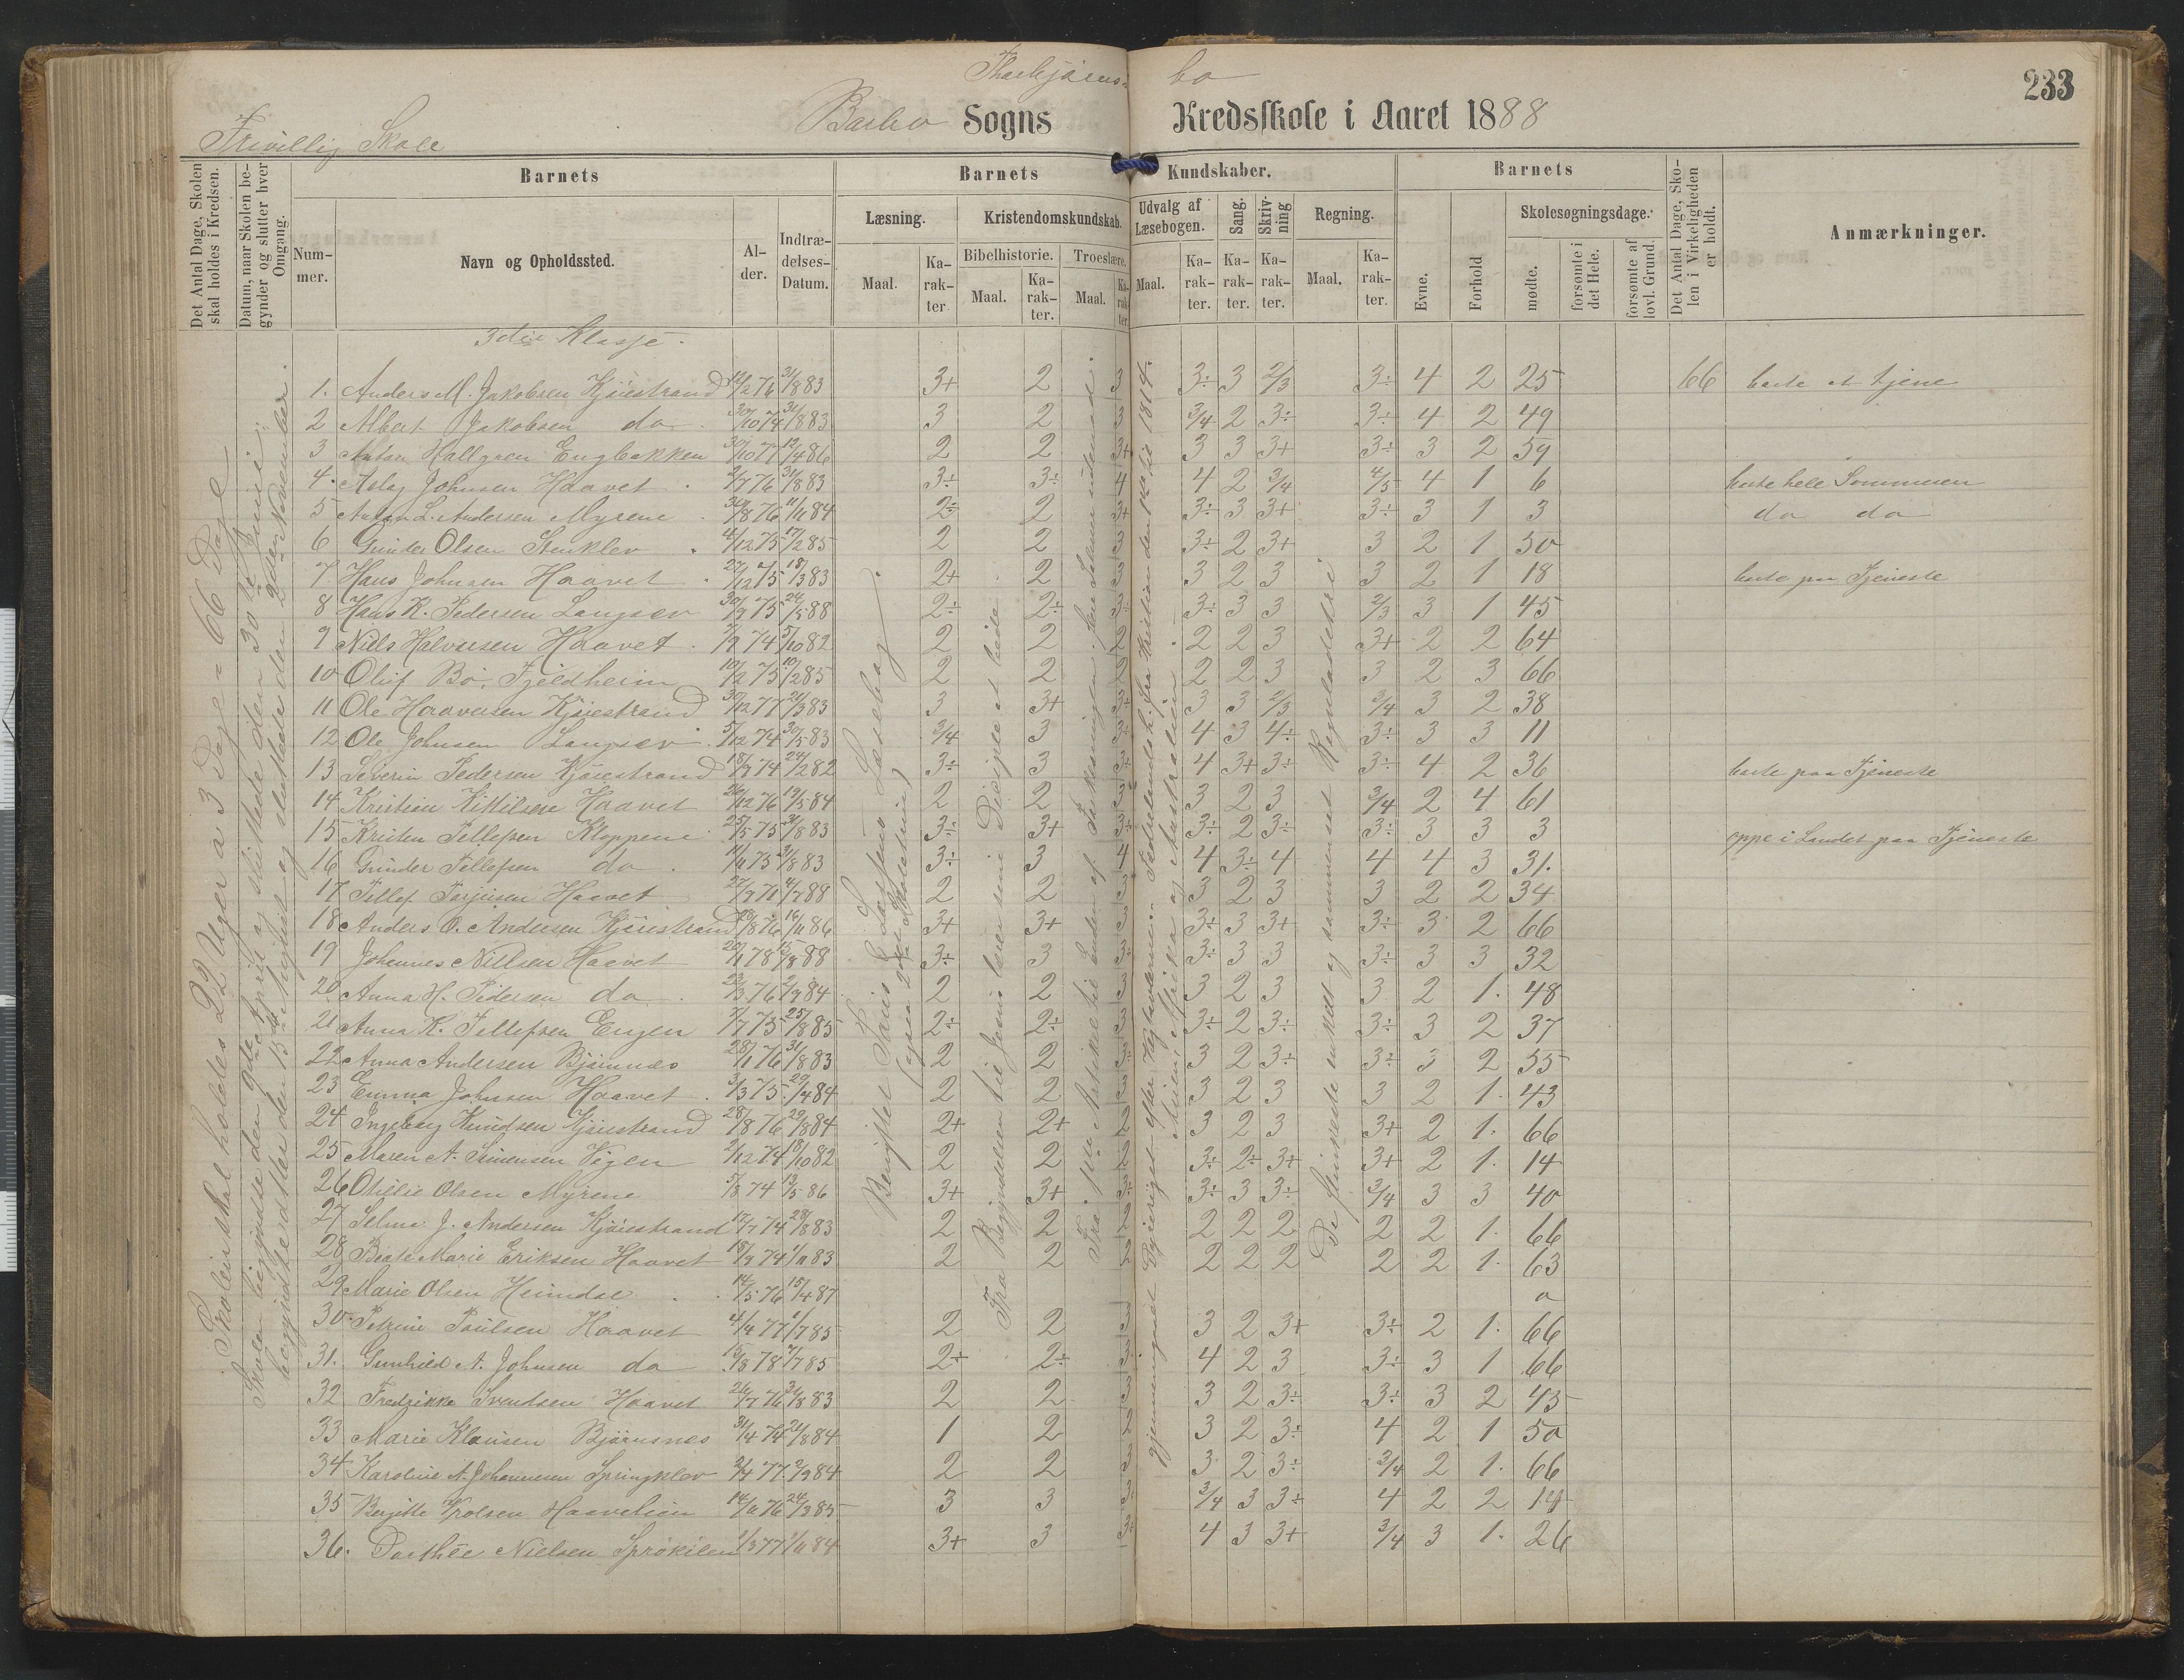 233
Thorbjørns= bo
Barbo Sogns Kredsskole i Aaret 1888
Frivillig Skole
Det Antal Dage, Skolen skal holdes i Kredsen.
Datum, naar Skolen begynder og slutter hver Omgang.
Barnets
Barnets Kundskaber.
Barnets
Det Antal Dage, Skolen i Virkeligheden er holdt.
Anmærkninger.
Nummer.
Navn og Opholdssted.
Alder.
Indtrædelses-Datum.
Læsning.
Kristendomskundskab.
Udvalg af Læsebogen.
Sang.
Skrivning
Regning.
Evne.
Forhold
Skolesøgningsdage.
Bibelhistorie.
Troeslære.
Maal. Karakter
Maal. Karakter.
Maal. Karakter
Maal. Karakter.
Karakter.
Karakter.
Maal. Karakter.
mødte.
forsømte i det Hele.
forsømte af lovl. Grund.
3die Klasse.
Skolen skal holdes 22 Uger a 3 Dage = 66 Dage
1. Anders M. Jakobsen Kjøiestrand 12/2 76 31/8 83 3+ 2 3 3÷ 3 2/3 3÷ 4 2 25 66 borte at tjene
2 Albert Jakobsen do 30/10 74 31/8 83 3 2 3 3/4 2 3÷ 3÷ 4 2 49
3 Anton Hallgren Engbakken 30/10 77 12/4 86 2 2 3+ 3 3 3+ 3÷ 3 2 59
4. Aslag Johnsen Haavet 2/7 76 31/8 83 3÷ 3÷ 4 4 2 3/4 4/5 4 1 6 borte hele Sommeren
5 Anton L. Andersen Myrene 30/8 76 11/11 84 2÷ 2 3+ 3÷ 3 3+ 3÷ 3 1 3 do do
6 Gunder Olsen Stenklev 4/12 75 17/2 85 2 2 3 3÷ 2 3+ 3 2 1 50
7. Hans Johnsen Haavet 27/12 75 18/3 83 2+ 2 3 3 2 3 3 2 1 18 borte paa Tjeneste
8 Hans K. Pedersen Langsev 30/9 75 24/5 88 2÷ 2÷ 3÷ 3÷ 3 3 2/3 3 1 45
9 Niels Halvorsen Haavet 7/9 74 5/10 82 2 2 2 2 2 3 3+ 2 2 64
10 Oluf Bo. Fjeldheim 10/2 75 10/2 85 2 2 2 2 2 3 3 2 3 66
11 Ole Haaversen Kjøiestrand 30/12 77 21/3 83 3 3+ 3÷ 3 3 2/3 3/4 3 2 38
12. Ole Johnsen Langsev 5/12 74 30/5 83 3/4 3 3÷ 4 3 4÷ 3÷ 3 3 11
13 Severin Pedersen Kjøiestrand 18/9 74 24/2 82 3÷ 3 3÷ 4 3+ 3÷ 3÷ 4 2 36 borte paa Tjeneste
14 Kristian Kittilsen Haavet 26/12 76 19/5 84 2 2 3 3 2 3 3/4 2 4 61
15 Kristen Tellefsen Kloppene 25/5 75 31/8 83 3÷ 3+ 3+ 3÷ 2 3÷ 3÷ 3 3 3 oppe i Landet paa Tjeneste
16 Gunder Tellefsen do 11/11 75 31/8 83 3÷ 3 4 4 3÷ 4 4 4 3 31.
17 Tellef Torjusen Haavet 27/9 71 4/7 88 2 2 3 3 2 3 3 2 2 34
18 Anders O. Andersen Kjøiestrand 20/8 76 16/11 86 3+ 3+ 3 3÷ 3 3+ 3÷ 3 2 66
19 Johannes Nilsen Haavet 20/1 78 15/8 88 3÷ 3 3÷ 3÷ 3 3 3÷ 3 3 32
20 Anna H. Pedersen do 23/3 76 2/9 84 2 2 3 3 2 3 3 2 1. 48
21 Anna K. Tellefsen Engen 7/7 75 25/8 85 2÷ 2÷ 3 3÷ 2 3 3÷ 3 2 37
22 Anna Andersen Bjørnnes 28/1 76 31/8 83 2 2 3÷ 3 2 3÷ 3÷ 3 2 55
23 Emma Johnsen Haavet 3/3 75 29/4 84 2 2 3 3 2 3 3 2 1. 43
24 Ingeborg Knudsen Kjøiestrand 28/8 76 29/8 84 2+ 2+ 2 3 2 3 3+ 2 1. 66
25 Maren A. Simensen Vigen 2/12 74 18/10 82 2 2 2 3÷ 2÷ 3+ 3+ 2 1. 14
26 Othilie Olsen Myrene 5/8 74 13/5 86 3+ 3+ 3÷ 3÷ 3 3÷ 3/4 3 3 40
27 Selma J. Andersen Kjøiestrand 17/7 74 28/8 83 2 2 2 2 2 2 2 2 1. 66
28 Beate Marie Eriksen Haavet 18/9 74 1/11 83 2 2 2 2 2 2 2 2 1. 63
29 Marie Olsen Heimdal 14/5 76 15/4 87 0
30 Petrine Poulsen Haavet 4/9 77 1/7 85 2 2 3 3 2 3+ 3÷ 2 1. 66
31. Gunhild A. Johnsen do 15/8 78 7/7 85 2÷ 2÷ 3 4 2 3 3÷ 3 1 66
32 Fredrikke Svendsen Haavet 26/7 76 31/8 83 2 2 3 3 2 3÷ 3÷ 3 2 45
33 Marie Klausen Bjørnsnes 31/4 74 21/8 84 1 2 2 3 2 3÷ 4 2 1 50
34 Karoline A. Johannesen Springklev 2/4 77 2/9 84 2 2 3 3 2 3÷ 3/4 2 1. 66
35 Bergitte Trolsen Haavelien 14/11 76 24/3 85 3 3 3÷ 3/4 3 3÷ 4 2 2 14
36. Dorthée Nielsen Sprøkilen 1/3 77 1/11 84 3+ 3 3÷ 4 3 3+ 3/4 3 1. 26